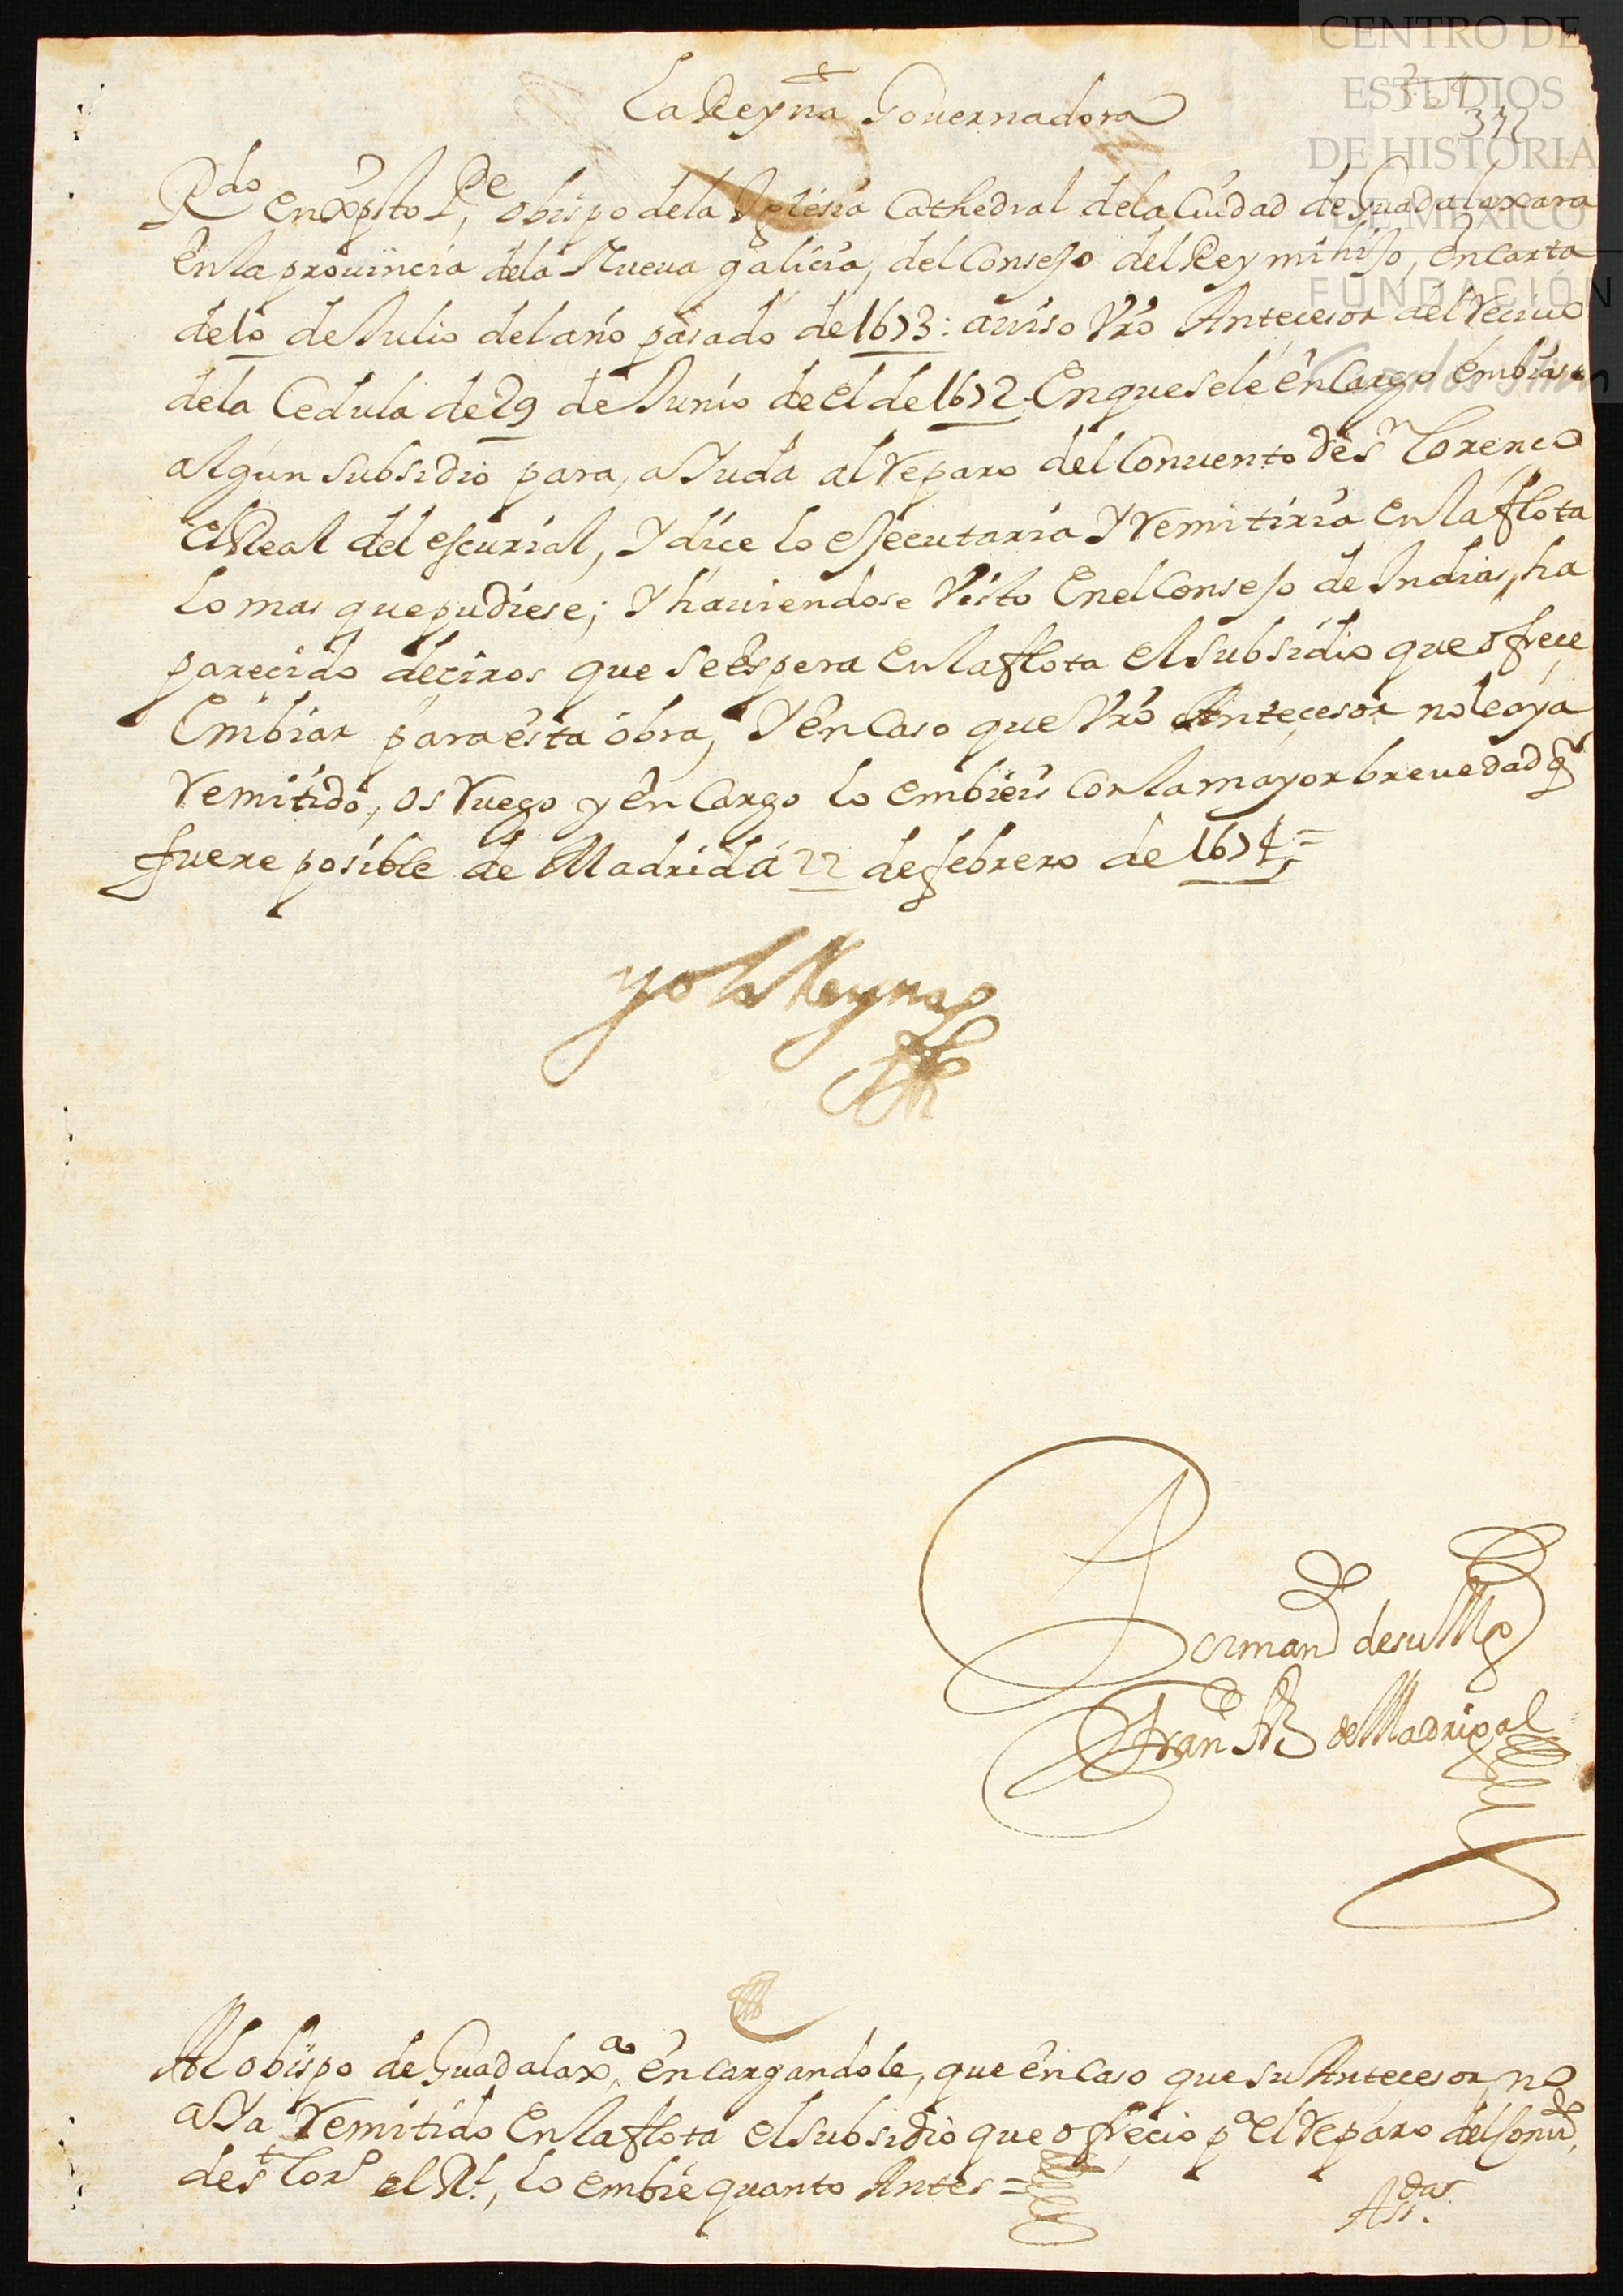 CENTRO DE
ESTUDIOS
DE HISTORIA
DE MEXICO
FUNDACIÓN
La Reyna Gouernadora
Rdo en Xpsto Pe, obispo de la Yglesia Cathedral de la Ciudad de Guadalaxara
en la prouincia de la Nueua galicia, del Consejo del Rey mi hijo, en carta
de 10 de Julio del año pasado de 1673: auiso Vro Antecesor del reciuo
de la Cedula de 29 de Junio de el de 1672 en que se le encargo embiase
algun subsidio para, aiuda al reparo del Conuento de Sn Lorenco
el Real del escurial, y dice lo ejecutaria y remitiria en la flota
lo mas que pudiese; y hauiendose visto en el Consejo de Indias, ha
parecido deciros que se espera en la flota el subsidio que ofrece
embiar para esta obra, y en caso que Vro Antecesor no le aya
remitido, os ruego y encargo lo embieis con la mayor breuedad q
fuere posible de Madrid a 22 de febrero de 1674=
yo la Reyna
Por mando de su Mgd
Franco frz de Madrigal
Al obispo de Guadalaxa, encargandole, que en caso que su Antecesor no
aya remitido en la flota el subsidio que ofrecio pa el reparo del Conuto,
de St Lorço el Rl, lo embie quanto antes=